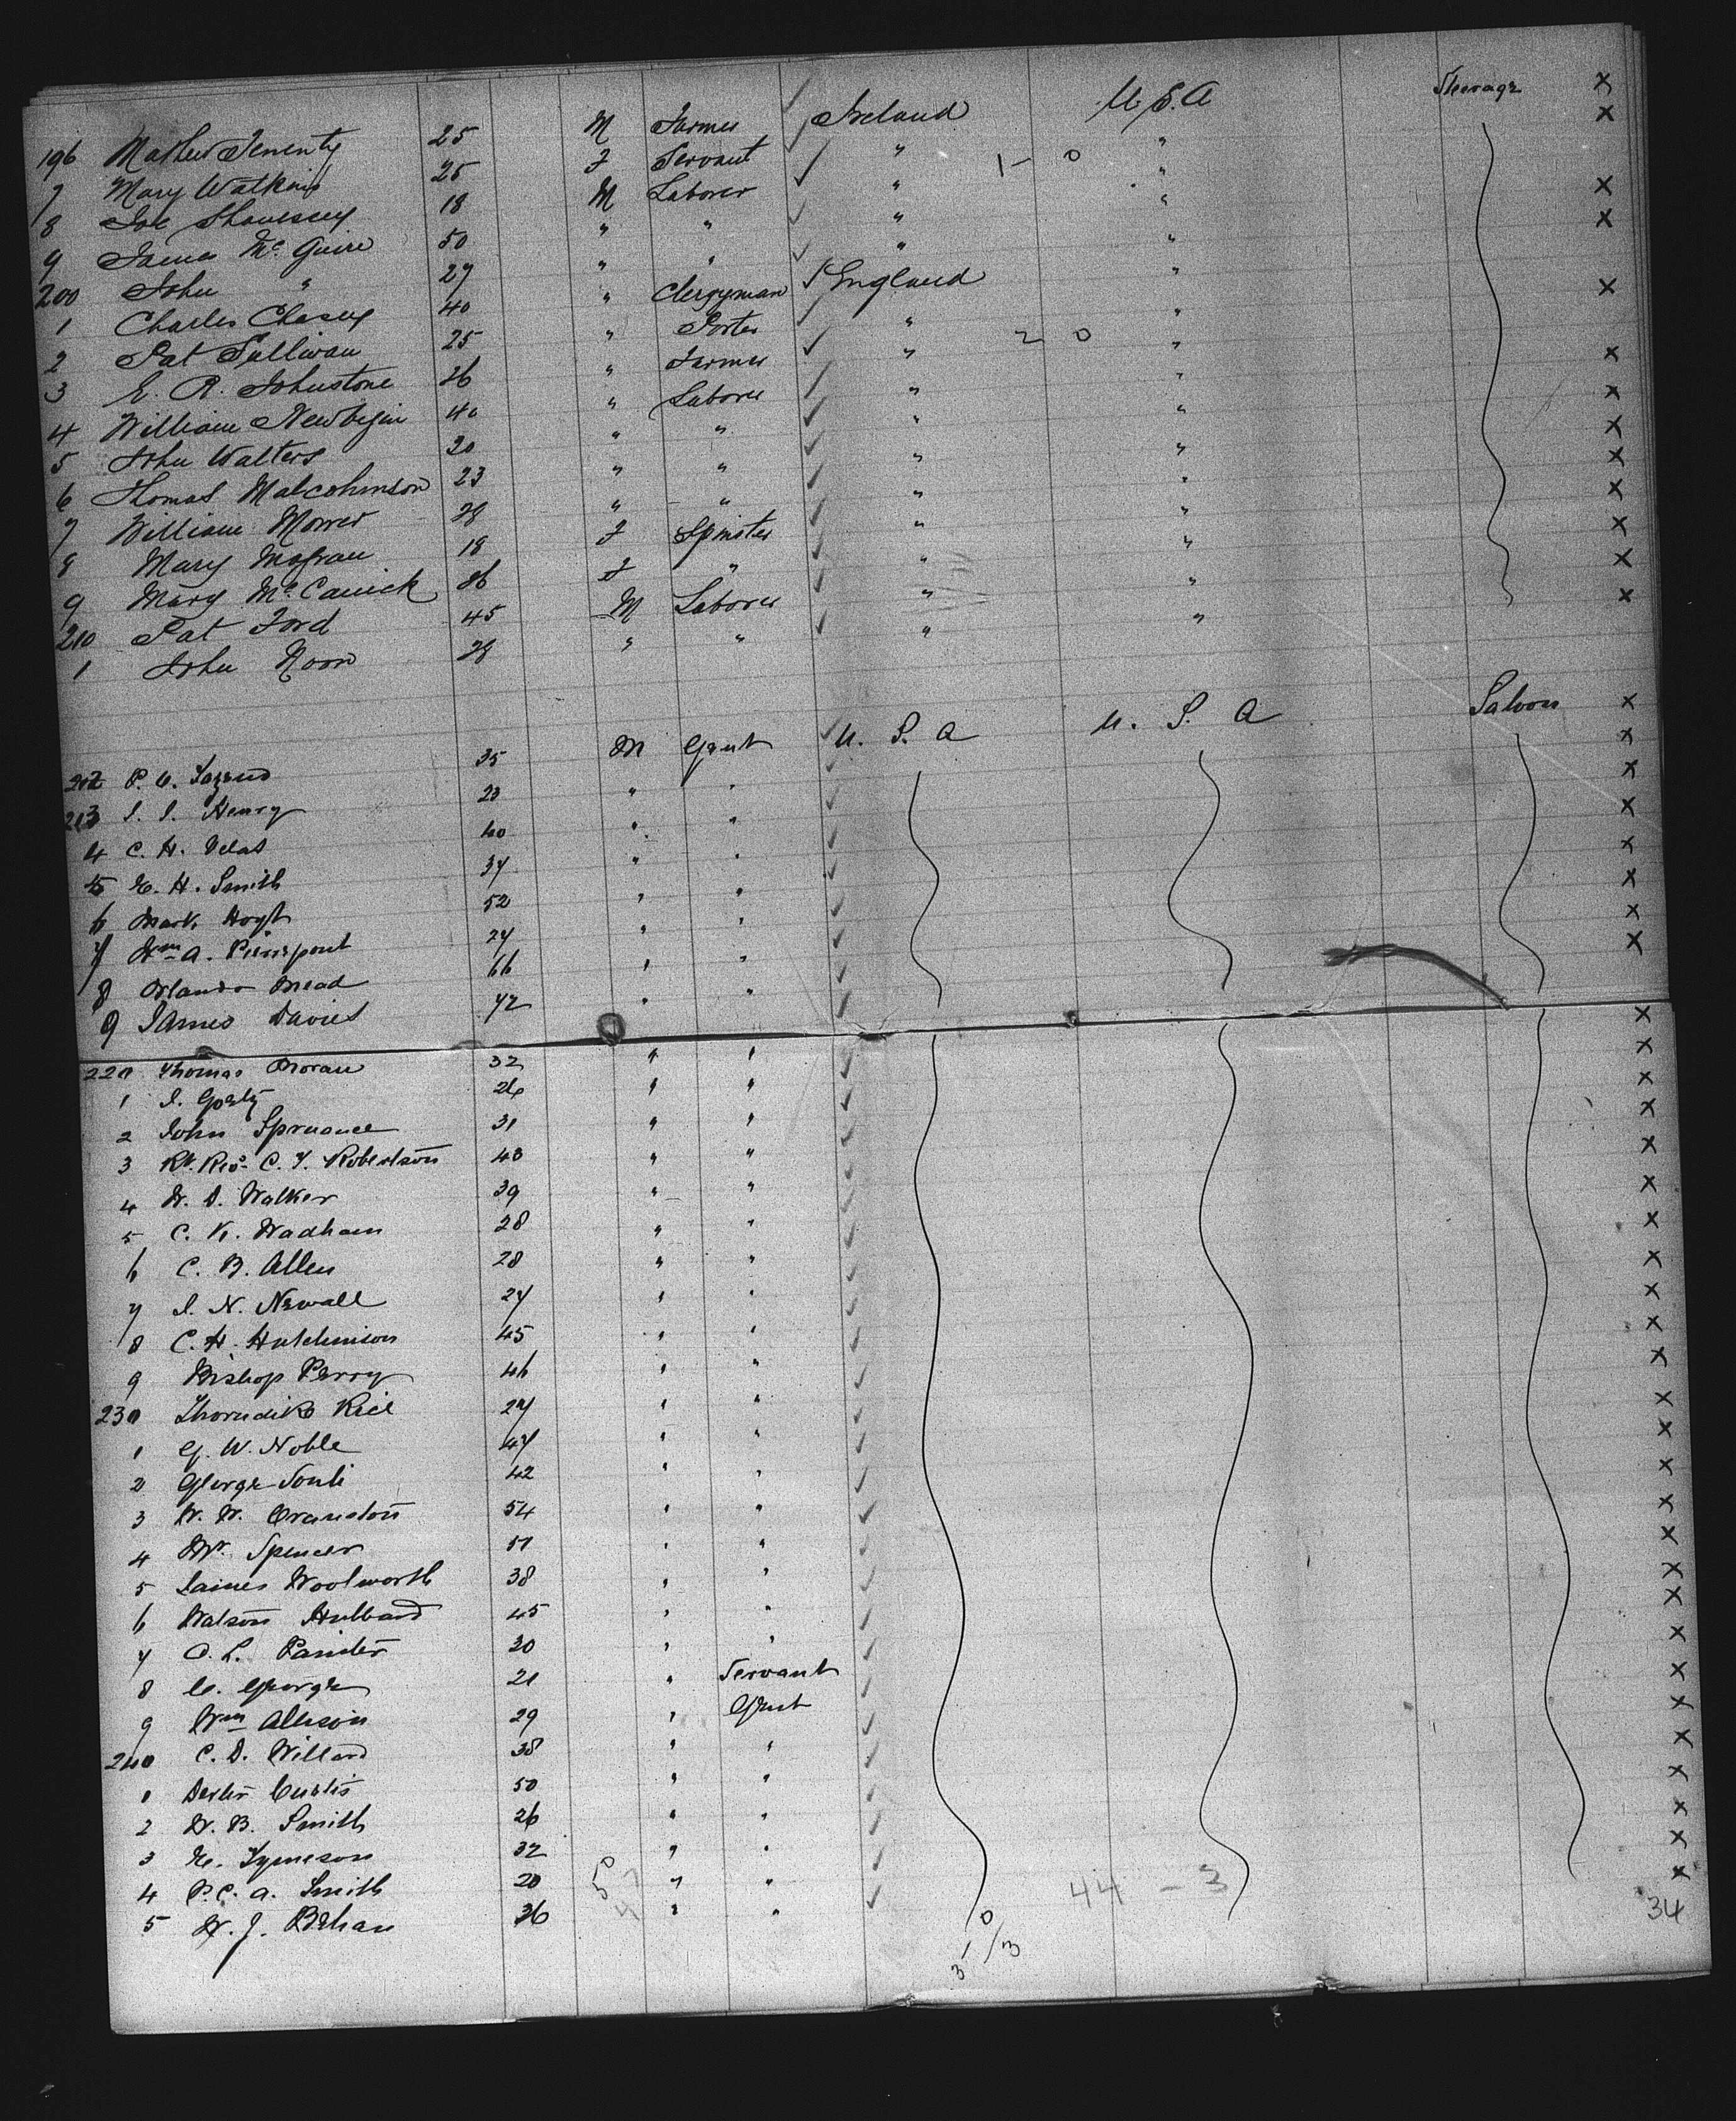 196 Mathew Tenenty 25 M Farmer Ireland U.S.A Steerage ×
7 Mary Watkins 25 F Servant " 1 - 0 " ×
8 Joe Shanessey 18 M Laborer " "
9 James McGuire 50 " " " " ×
200 John " 27 " " " " ×
1 Charles Chasey 40 " Clergyman England "
2 Pat Sullivan 25 " Porter " " ×
3 E. R. Johnstone 26 " Farmer " 2 0 "
4 William Newbegin 40 " Laborer " " ×
5 John Walters 20 " " " " ×
6 Thomas Malcohmson 23 " " " " ×
7 William 28 " " " " ×
8 Mary 18 F Spinster " " ×
9 Mary Mc Canick 26 F " " " ×
210 Pat Ford 45 M Laborer " " ×
1 John Noon 28 " " " " ×
212 P. 35 M Gent U. S. A U. S. A Saloon ×
213 Henry 23 " " ×
4 C. H. 40 " " ×
5 E. H. Smith 37 " " ×
6 Mark Hoyt 52 " " ×
7 Wm A. Pierrepont 27 " " ×
8 Orlando Mead 66 " " ×
9 James Davies 42 " " ×
220 Thomas Moran 32 " " ×
1 26 " " ×
2 John Spruance 31 " " ×
3 Rt. Rev. C. F. Robertson 43 " " ×
4 W. D. Walker 39 " " ×
5 C. K. Wadham 28 " " ×
6 C. B. Allen 28 " " ×
7 J. N. Newall 27 " " ×
8 C. H. Hutchinson 45 " " ×
9 Bishop Perry 46 " " ×
230 Thorndike Rice 27 " " ×
1 G. W. Noble 47 " " ×
2 George 42 " " ×
3 W. W. Cranston 54 " " ×
4 Mr. Spencer 51 " " ×
5 James Woolworth 38 " " ×
6 Watson Hubbard 45 " " ×
7 C. L. Painter 30 " " ×
8 C. George 21 " Servant ×
9 Wm Allison 29 " Gent ×
240 C. D. Willard 38 " " ×
1 Dexter Curtis 50 " " ×
2 W. B. Smith 26 " " ×
3 E. Tymeson 32 " " ×
4 P. C. A. Smith 20 " " 44 - 3 ×
5 W. J. Behan 36 " " 34